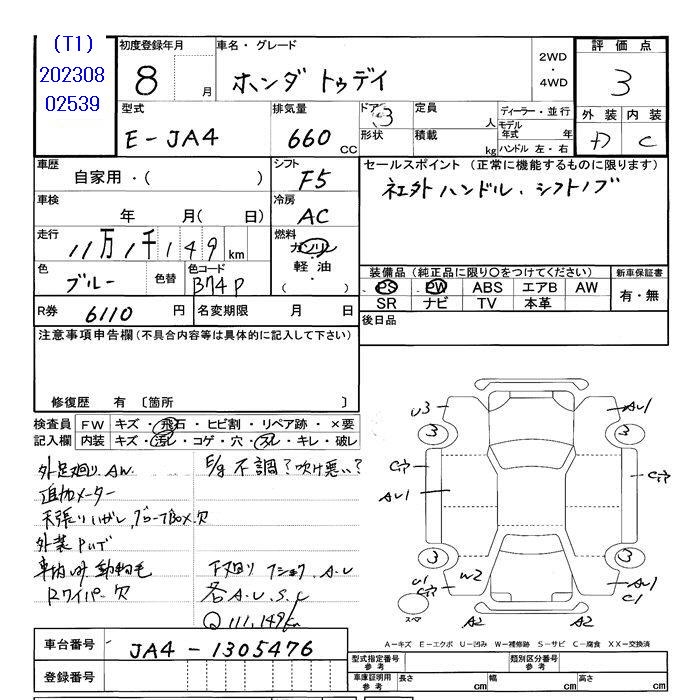 (T1)
202308
02539
初度登録年月
8 月
車名・グレード
ホンダ トゥデイ
2WD
・
4WD
評価点
3
外装 内装
D C
型式
E-JA4
排気量
660 CC
ドア 3
形状
定員 人
積載 kg
ディーラー・並行
モデル年式 年
ハンドル 左・右
車歴
自家用・( )
シフト
F5
セールスポイント (正常に機能するものに限ります)
社外ハンドル、シフトノブ
車検
年 月( 日)
冷房
AC
走行
11万1千149 km
燃料
ガソリン
軽油
( )
色
ブルー
色替
色コード
B74P
装備品 (純正品に限り〇をつけてください)
PS PW ABS エアB AW
SR ナビ TV 本革
新車保証書
有・無
R券 6110 円
名変期限 月 日
後日品
注意事項申告欄 (不具合内容等は具体的に記入して下さい)
修復歴 有 〔箇所 〕
検査員記入欄
FW キズ・飛石・ヒビ割・リペア跡・×要
内装 キズ・汚レ・コゲ・穴・スレ・キレ・破レ
外足廻り、AW
E/g不調?吹け悪い?
追加メーター
天張りハガレ、グローブBOX欠
外装PWデ
車内ゴミ 動物毛
Rワイパー欠
下廻り フショク、A・U
各A・U・S・C
Q 111,149km
U3 AU1
3 3
C AU1 C
3 3
U1 W2 AU1
C1
スペア
A2 A2
A-キズ E-エクボ U-凹み W-補修跡 S-サビ C-腐食 XX-交換済
車台番号 JA4-1305476
登録番号
型式指定番号 参考
類別区分番号 参考
車庫証明用 参考
長さ cm 幅 cm 高さ cm